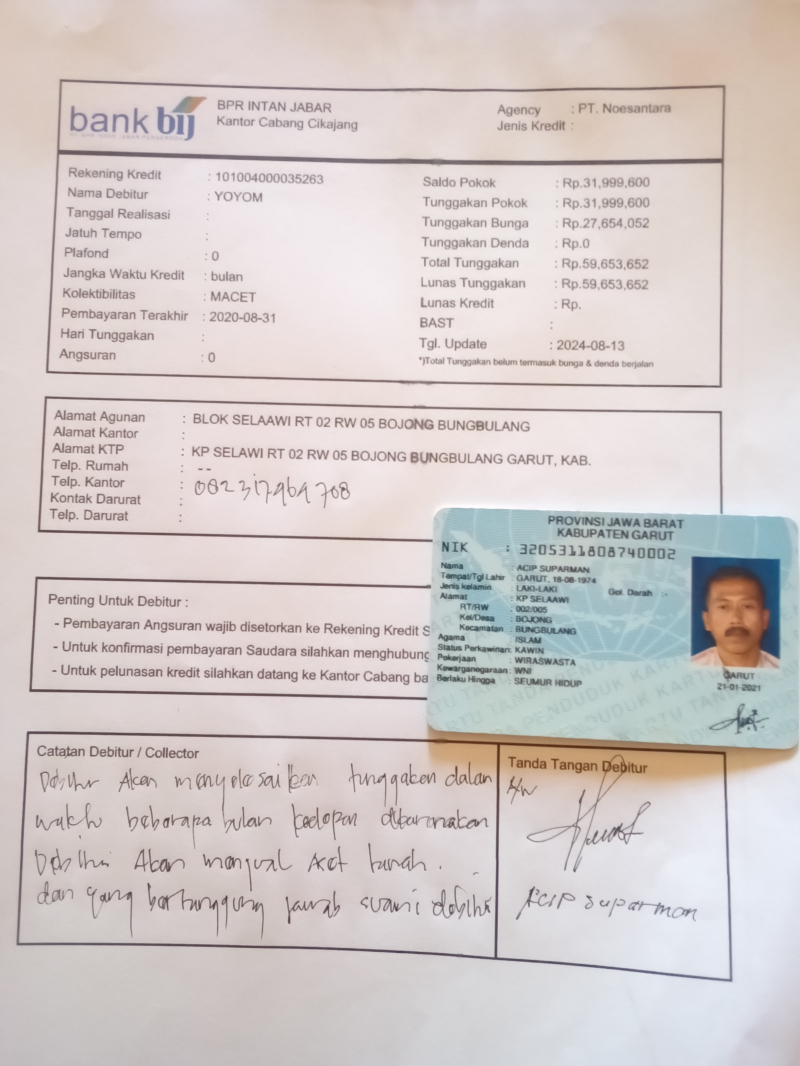 bank bij
BPR INTAN JABAR
Kantor Cabang Cikajang
Agency : PT. Noesantara
Jenis Kredit :
Rekening Kredit : 101004000035263
Nama Debitur : YOYOM
Tanggal Realisasi :
Jatuh Tempo :
Plafond : 0
Jangka Waktu Kredit : bulan
Kolektibilitas : MACET
Pembayaran Terakhir : 2020-08-31
Hari Tunggakan :
Angsuran : 0
Saldo Pokok : Rp.31,999,600
Tunggakan Pokok : Rp.31,999,600
Tunggakan Bunga : Rp.27,654,052
Tunggakan Denda : Rp.0
Total Tunggakan : Rp.59,653,652
Lunas Tunggakan : Rp.59,653,652
Lunas Kredit : Rp.
BAST :
Tgl. Update : 2024-08-13
*)Total Tunggakan belum termasuk bunga & denda berjalan
Alamat Agunan : BLOK SELAAWI RT 02 RW 05 BOJONG BUNGBULANG
Alamat Kantor :
Alamat KTP : KP SELAWI RT 02 RW 05 BOJONG BUNGBULANG GARUT, KAB.
Telp. Rumah : --
Telp. Kantor : 082317969708
Kontak Darurat :
Telp. Darurat :
PROVINSI JAWA BARAT
KABUPATEN GARUT
NIK : 3205311808740002
Nama : ACIP SUPARMAN
Tempat/Tgl Lahir : GARUT, 18-08-1974
Jenis kelamin : LAKI-LAKI Gol. Darah :-
Alamat : KP SELAAWI
RT/RW : 002/005
Kel/Desa : BOJONG
Kecamatan : BUNGBULANG
Agama : ISLAM
Status Perkawinan: KAWIN
Pekerjaan : WIRASWASTA
Kewarganegaraan: WNI
Berlaku Hingga : SEUMUR HIDUP
GARUT
21-01-2021
Penting Untuk Debitur :
- Pembayaran Angsuran wajib disetorkan ke Rekening Kredit S
- Untuk konfirmasi pembayaran Saudara silahkan menghubung
- Untuk pelunasan kredit silahkan datang ke Kantor Cabang ba
Catatan Debitur / Collector
Debitur Akan menyelesaikan tunggakan dalam
waktu beberapa bulan kedepan dikarenakan
Debitur Akan menjual Aset tanah.
dan yang bertanggung jawab suami debitur
Tanda Tangan Debitur
A/N
ACIP Suparman